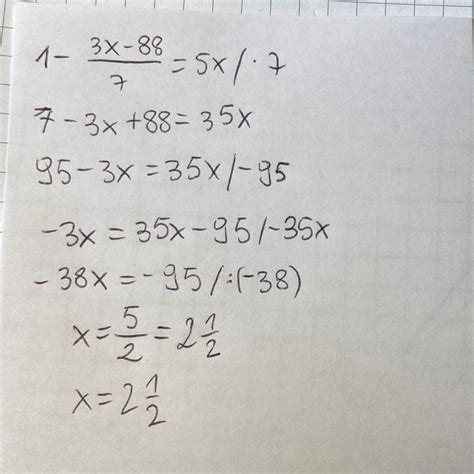 1 - (3x-88)/7 = 5x /·7
7-3x+88=35x
95-3x=35x/-95
-3x=35x-95/-35x
-38x=-95/:(-38)
x=5/2=2 1/2
x=2 1/2